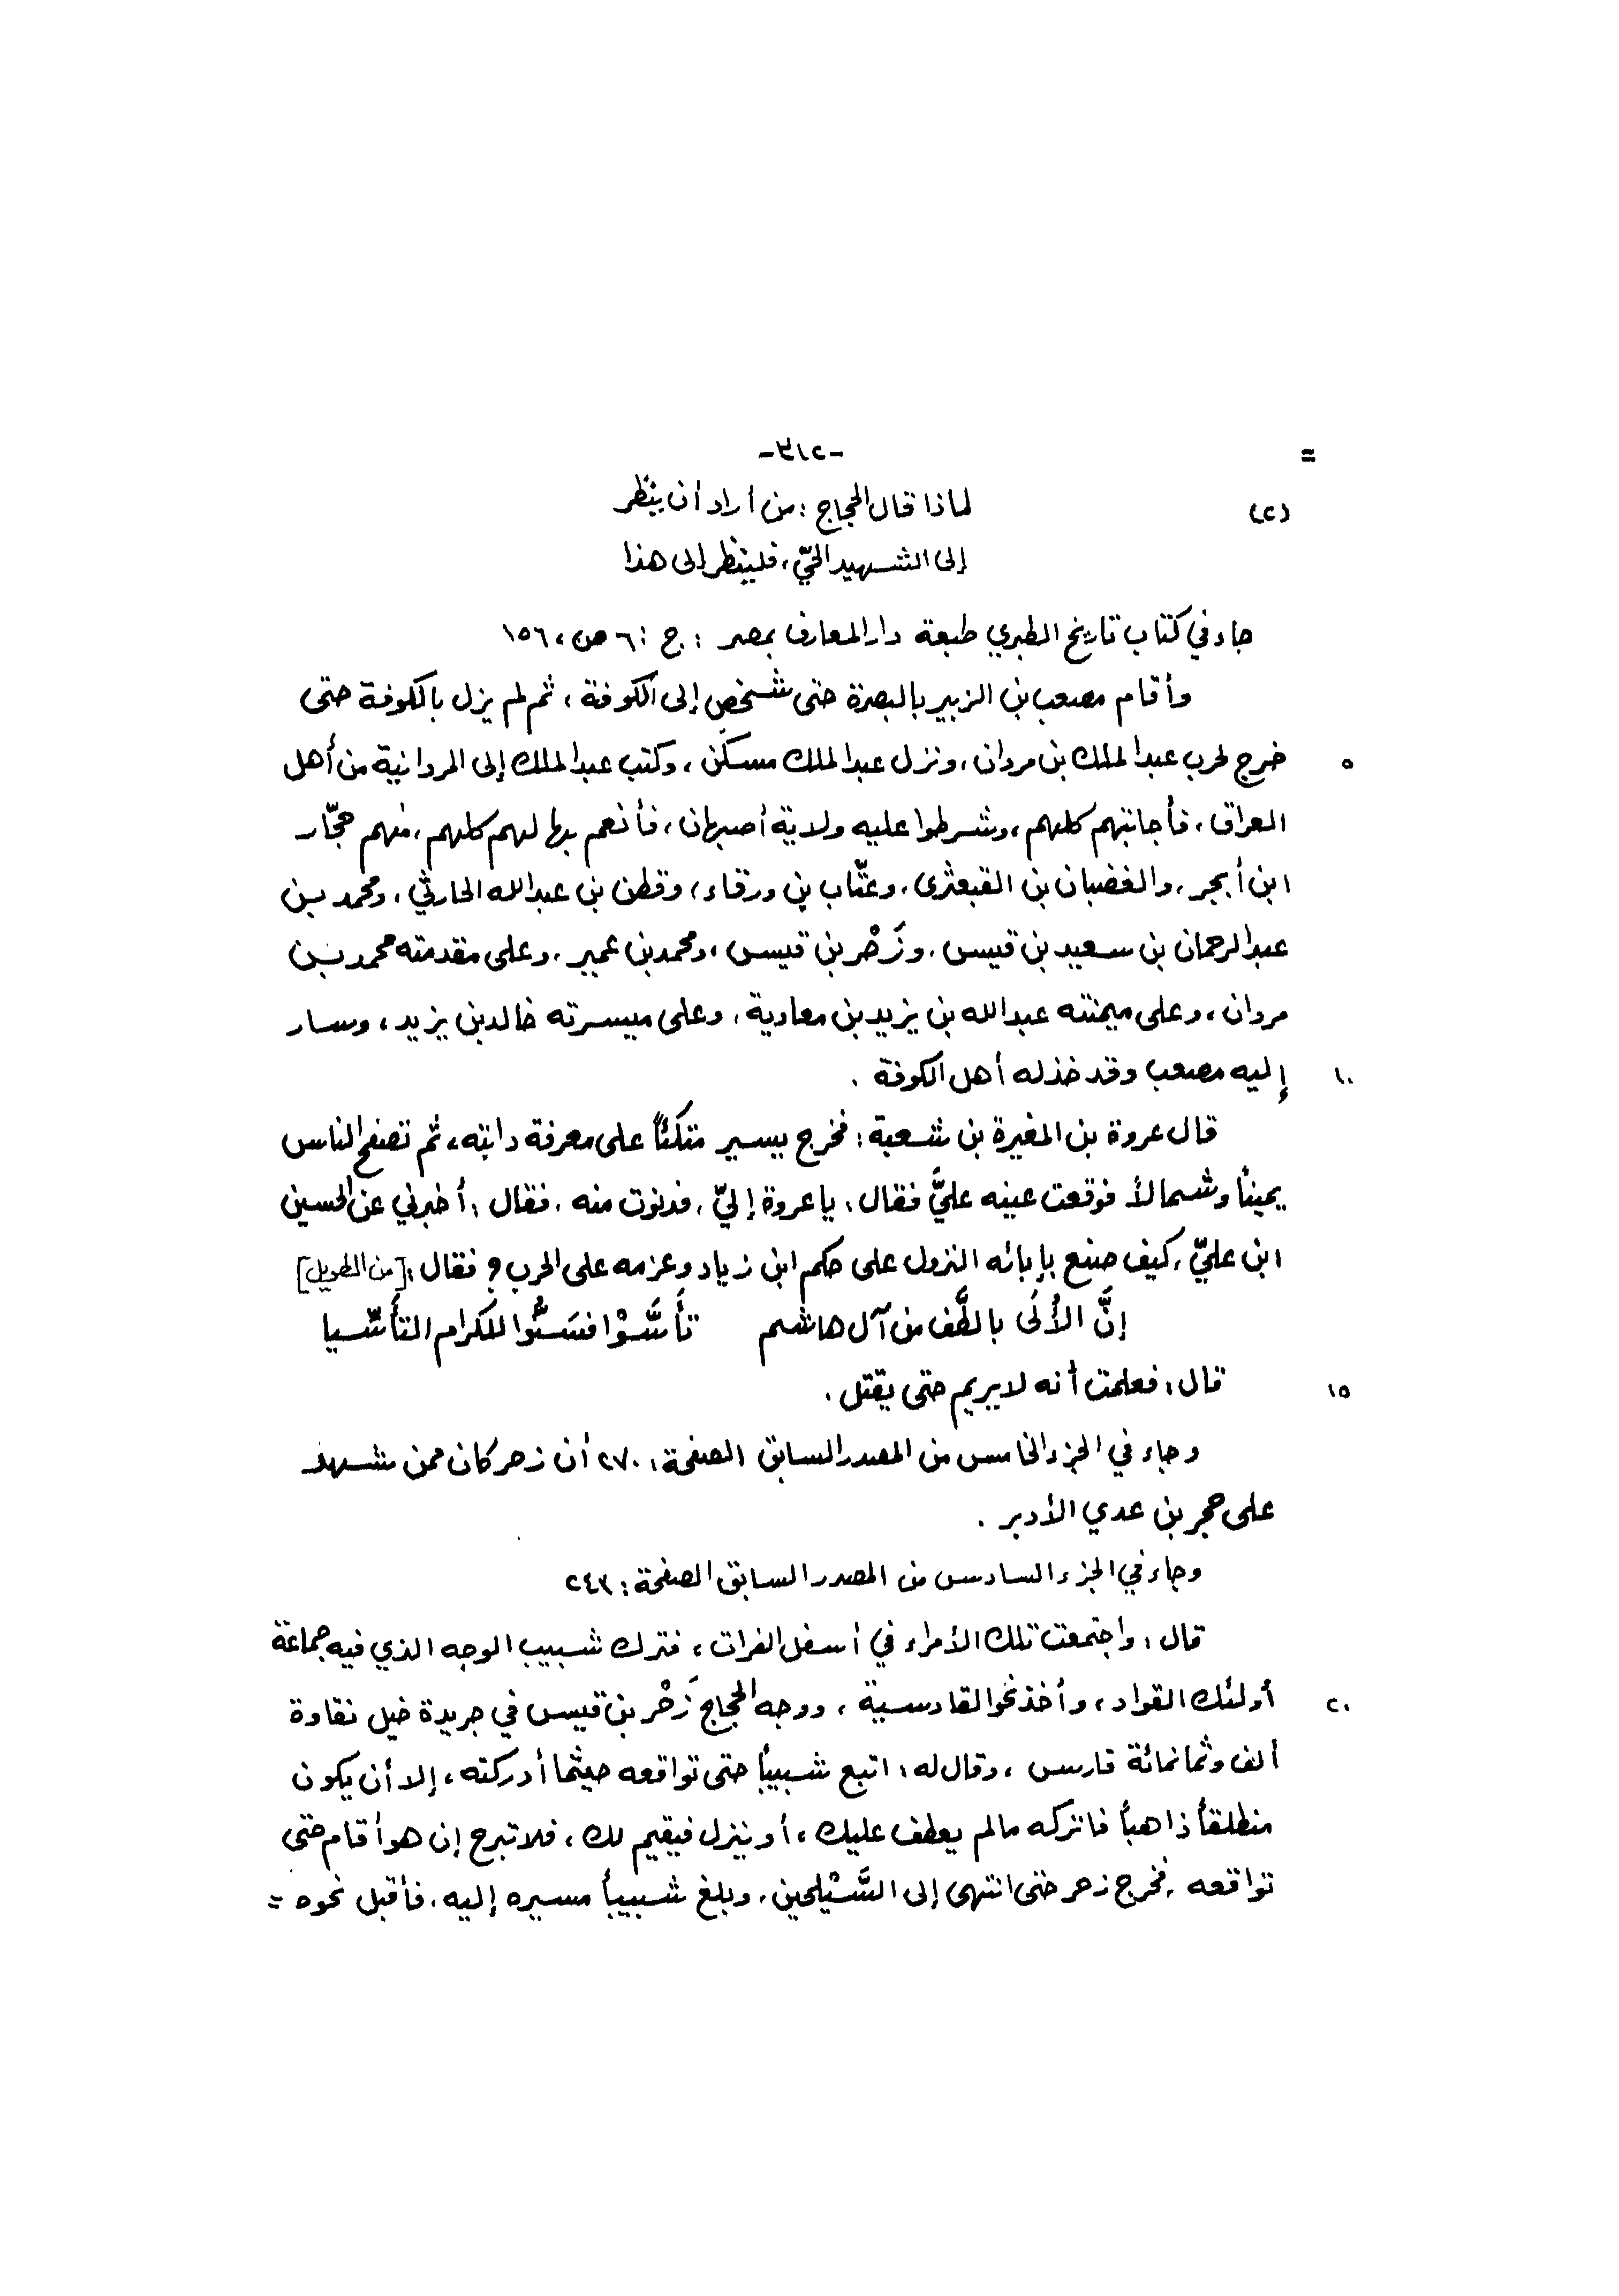 = -٣١٢-
(٢) لماذا قال الحجاج : من أراد أن ينظر
إلى الشهيد الحيّ ، فلينظر إلى هذا
جاء في كتاب تاريخ الطبري طبعة دار المعارف بمصر : ج : ٦ ص ، ١٥٦
وأقام مصعب بن الزبير بالبصرة حتى شخص إلى الكوفة ، ثم لم يزل بالكوفة حتى
٥ خرج لحرب عبدالملك بن مروان ، ونزل عبدالملك مسكن ، وكتب عبدالملك إلى المروانية من أهل
العراق ، فأجابتهم كلهم ، وشرطوا عليه ولاية أصبهان ، فأنعم بها لهم كلهم ، منهم حجّار
ابن أبجر ، والغضبان بن القبعثرى ، وعتّاب بن ورقاء ، وقطن بن عبدالله الحارثي ، ومحمد بن
عبدالرحمان بن سعيد بن قيس ، وزَحْر بن قيس ، ومحمد بن عمير ، وعلى مقدمته محمد بن
مروان ، وعلى ميمنته عبدالله بن يزيد بن معاوية ، وعلى ميسرته خالد بن يزيد ، وسار
١٠ إليه مصعب وقد خذله أهل الكوفة .
قال عروة بن المغيرة بن شعبة : فخرج يسير متكئاً على معرفة دابته ، ثم تصفح الناس
يميناً وشمالاً فوقعت عينه عليَّ فقال : يا عروة إليّ ، فدنوت منه ، فقال : أخبرني عن الحسين
ابن عليّ ، كيف صنع بإبائه النزول على حكم ابن زياد وعزمه على الحرب ؟ فقال : [من الطويل]
إنَّ الأُلَى بالطَّف من آل هاشم تأَسَّوْا فسَنُّوا للكرام التأَسِّيا
١٥ قال : فعلمت أنه لا يريم حتى يقتل .
وجاء في الجزء الخامس من المصدر السابق الصفحة : ٢٧٠ أن زحر كان ممن شهد
على حجر بن عدي الأدبر .
وجاء في الجزء السادس من المصدر السابق الصفحة : ٢٤٣
قال : واجتمعت تلك الأمراء في أسفل الفرات ، فترك شبيب الوجه الذي فيه جماعة
٢٠ أولئك القواد ، وأخذ نحو القادسية ، ووجه الحجاج زَحْر بن قيس في جريدة خيل نقاوة
ألف وثمانمائة فارس ، وقال له : اتبع شبيباً حتى تواقعه حيثما أدركته ، إلا أن يكون
منطلقاً ذاهباً فاتركه مالم يعطف عليك ، أو ينزل فيقيم لك ، فلا تبرح إن هو أقام حتى
تواقعه ، فخرج زحر حتى انتهى إلى السَّيْلحين ، وبلغ شبيباً مسيره إليه ، فأقبل نحوه =